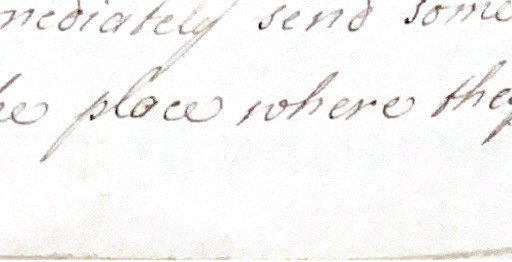 mediately send some
he place where they